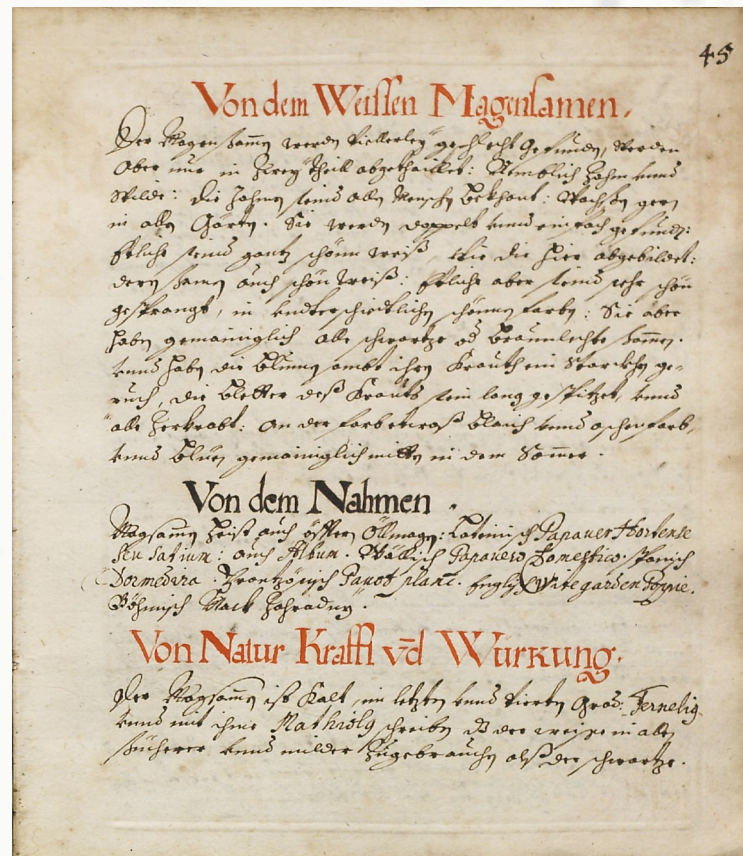 45
Von dem Weissen Magensamen.
Der Magen Samen werden Viellerley geschlecht gefunden, Werden
Aber nur in Zwey Theill abgethaillet: Nemblich Zahm unnd
Wilde: die Zahmen seind allen Menschen Bekhant: Wachsen gern
in allen Gärten. Sie werden doppelt unnd einfach gefunden:
Ettliche seind gantz schönn weiß, wie die hier abgebildet:
deren Samen auch schön weiß: Ettliche aber seind sehr schön
gesprangt, in underschiedtlichen schönnen farben: Sie aber
haben gemainniglich alle schwartze od Breünlechte Samen.
unnd haben die Blümen sambt ihren Krauth ein Starckhen ge-
ruch, die Bletter deß Krauts sein lang gespitzet, unnd
alle Zerkrabt: An der farb etwaß Blaich unnd aschenfarb,
unnd Blüen gemainniglich mitten in dem Sommer.
Von dem Nahmen.
Magsamen heist auch öfftern Öllmagen: Lateinisch Papauer Hortense
seu Satiuum: auch Album. Wällisch Papauero Domestico. Spanisch
Dormedera. Frantzösisch Pauot planc. Englisch Wite garden Popie.
Böhmisch Mack Zahradny.
Von Natur Krafft vnd Würkung.
Der Magsamen ist Kalt, im letzten unnd Vierten Grad: Fernelig
unnd mit ihme Mathioly schreiben das der weisse in allen
Sücherer unnd milder Zugebrauchen alß der schwartze.